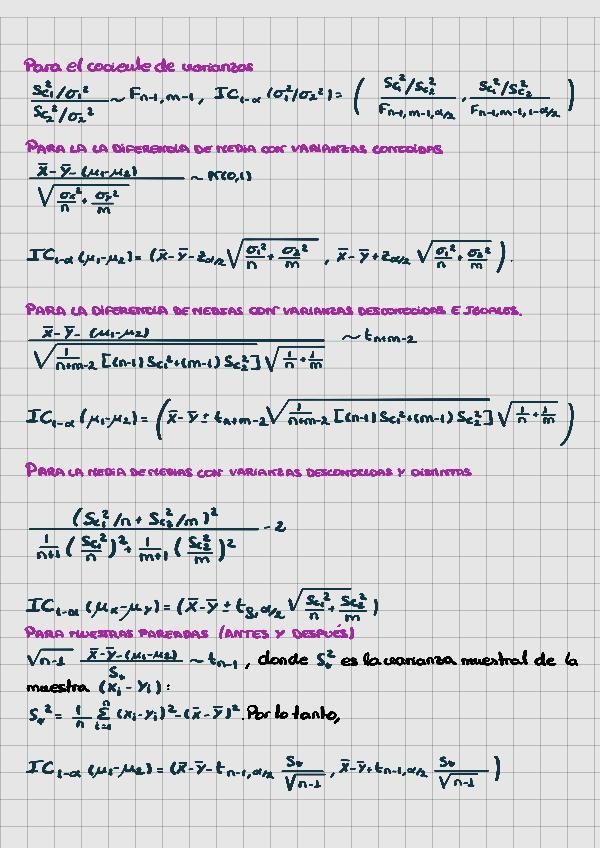 Para el cociente de varianzas
(Sc₁²/σ₁²)/(Sc₂²/σ₂²) ~ Fn-1,m-1 , IC1-α (σ₁²/σ₂²) = ( (Sc₁²/Sc₂²)/(Fn-1,m-1,α/2) , (Sc₁²/Sc₂²)/(Fn-1,m-1,1-α/2) )
PARA LA LA DIFERENCIA DE MEDIA CON VARIANZAS CONOCIDAS
(x̄-ȳ-(μ₁-μ₂))/√(σ₁²/n + σ₂²/m) ~ N(0,1)
IC1-α (μ₁-μ₂) = (x̄-ȳ-zα/2 √(σ₁²/n + σ₂²/m) , x̄-ȳ+zα/2 √(σ₁²/n + σ₂²/m) ).
PARA LA DIFERENCIA DE MEDIAS CON VARIANZAS DESCONOCIDAS E IGUALES.
(x̄-ȳ-(μ₁-μ₂))/(√(1/(n+m-2) [(n-1) Sc₁²+(m-1) Sc₂²]) √(1/n + 1/m)) ~ tn+m-2
IC1-α (μ₁-μ₂) = ( x̄-ȳ ± tn+m-2 √(1/(n+m-2) [(n-1) Sc₁²+(m-1) Sc₂²]) √(1/n + 1/m) )
PARA LA MEDIA DE MEDIAS CON VARIANZAS DESCONOCIDAS Y DISTINTAS
(Sc₁²/n + Sc₂²/m)²/(1/(n+1) (Sc₁²/n)² + 1/(m+1) (Sc₂²/m)²) - 2
IC1-α (μx-μy) = (x̄-ȳ ± tδ,α/2 √(Sc₁²/n + Sc₂²/m) )
PARA MUESTRAS PAREADAS (ANTES Y DESPUÉS)
√n-1 (x̄-ȳ-(μ₁-μ₂))/S* ~ tn-1 , donde S*² es la varianza muestral de la
muestra (xi - yi) :
S*² = 1/n Σⁿi=1 (xi-yi)²-(x̄-ȳ)². Por lo tanto,
IC1-α (μ₁-μ₂) = (x̄-ȳ-tn-1,α/2 S*/√n-1 , x̄-ȳ+tn-1,α/2 S*/√n-1 )